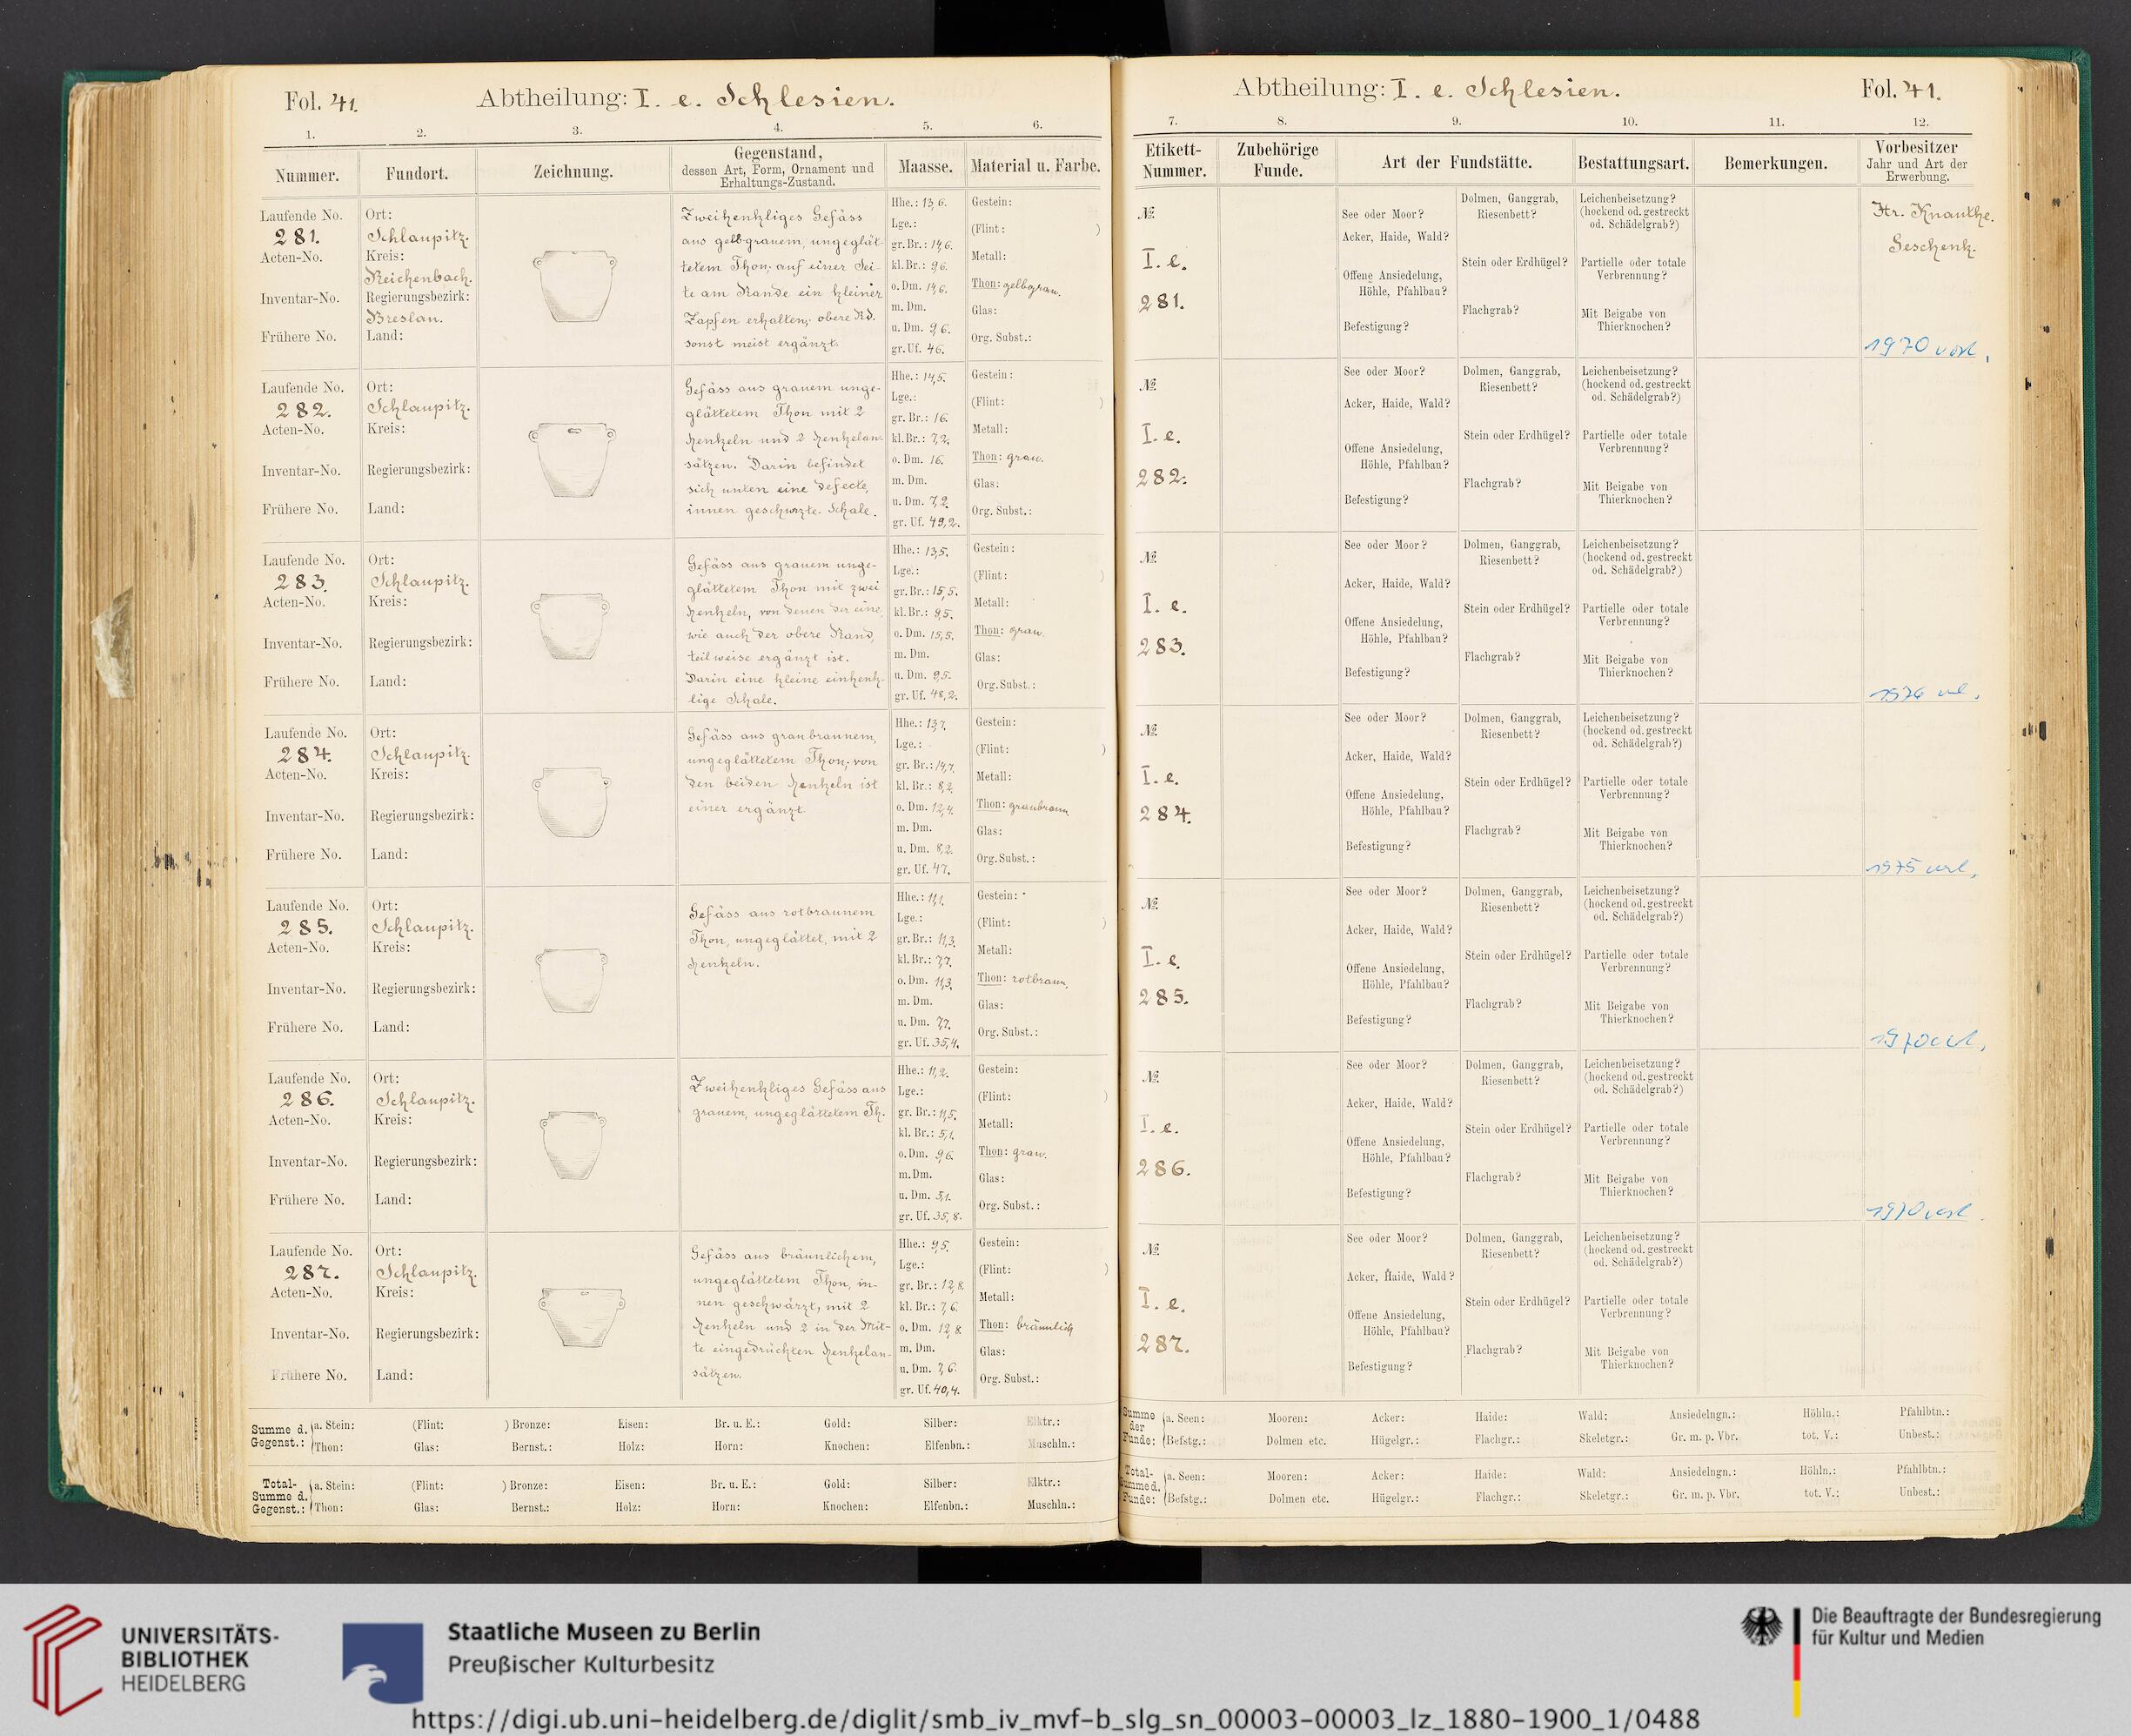 Fol. 41.
Abtheilung: I. e. Schlesien.
1. 2. 3. 4. 5. 6.
Nummer. Fundort. Zeichnung. Gegenstand, dessen Art, Form, Ornament und Erhaltungs-Zustand. Maasse. Material u. Farbe.
Laufende No. 281.
Acten-No.
Inventar-No.
Frühere No.
Ort: Schlaupitz.
Kreis: Reichenbach.
Regierungsbezirk: Breslau.
Land:
Zweihenkliges Gefäss
aus gelbgrauem, ungeglät-
tetem Thon; auf einer Sei-
te am Rande ein kleiner
Zapfen erhalten; obere Rd.
sonst meist ergänzt.
Hhe.: 13,6.
Lge.:
gr. Br.: 14,6.
kl. Br.: 9,6.
o. Dm. 14,6.
m. Dm.
u. Dm. 9,6.
gr. Uf. 46.
Gestein:
(Flint: )
Metall:
Thon: gelbgrau.
Glas:
Org. Subst.:
Laufende No. 282.
Acten-No.
Inventar-No.
Frühere No.
Ort: Schlaupitz.
Kreis:
Regierungsbezirk:
Land:
Gefäss aus grauem unge-
glättetem Thon mit 2
Henkeln und 2 Henkelan-
sätzen. Darin befindet
sich unten eine defecte,
innen geschwrzte. Schale.
Hhe.: 14,5.
Lge.:
gr. Br.: 16.
kl. Br.: 7,2.
o. Dm. 16.
m. Dm.
u. Dm. 7,2.
gr. Uf. 49,2.
Gestein:
(Flint: )
Metall:
Thon: grau.
Glas:
Org. Subst.:
Laufende No. 283.
Acten-No.
Inventar-No.
Frühere No.
Ort: Schlaupitz.
Kreis:
Regierungsbezirk:
Land:
Gefäss aus grauem unge-
glättetem Thon mit zwei
Henkeln, von denen der eine,
wie auch der obere Rand,
teilweise ergänzt ist.
Darin eine kleine einhenk-
lige Schale.
Hhe.: 13,5.
Lge.:
gr. Br.: 15,5.
kl. Br.: 9,5.
o. Dm. 15,5.
m. Dm.
u. Dm. 9,5.
gr. Uf. 48,2.
Gestein:
(Flint: )
Metall:
Thon: grau.
Glas:
Org. Subst.:
Laufende No. 284.
Acten-No.
Inventar-No.
Frühere No.
Ort: Schlaupitz.
Kreis:
Regierungsbezirk:
Land:
Gefäss aus graubraunem,
ungeglättetem Thon; von
den beiden Henkeln ist
einer ergänzt
Hhe.: 13,7.
Lge.:
gr. Br.: 14,7.
kl. Br.: 8,2.
o. Dm. 12,4.
m. Dm.
u. Dm. 8,2.
gr. Uf. 47.
Gestein:
(Flint: )
Metall:
Thon: graubraun
Glas:
Org. Subst.:
Laufende No. 285.
Acten-No.
Inventar-No.
Frühere No.
Ort: Schlaupitz.
Kreis:
Regierungsbezirk:
Land:
Gefäss aus rotbraunem
Thon, ungeglättet, mit 2
Henkeln.
Hhe.: 11,1.
Lge.:
gr. Br.: 11,3.
kl. Br.: 7,7.
o. Dm. 11,3.
m. Dm.
u. Dm. 7,7.
gr. Uf. 35,4.
Gestein:
(Flint: )
Metall:
Thon: rotbraun.
Glas:
Org. Subst.:
Laufende No. 286.
Acten-No.
Inventar-No.
Frühere No.
Ort: Schlaupitz.
Kreis:
Regierungsbezirk:
Land:
Zweihenkliges Gefäss aus
grauem, ungeglättetem Th.
Hhe.: 11,2.
Lge.:
gr. Br.: 11,5.
kl. Br.: 5,1.
o. Dm. 9,6.
m. Dm.
u. Dm. 5,1.
gr. Uf. 35,8.
Gestein:
(Flint: )
Metall:
Thon: grau.
Glas:
Org. Subst.:
Laufende No. 287.
Acten-No.
Inventar-No.
Frühere No.
Ort: Schlaupitz.
Kreis:
Regierungsbezirk:
Land:
Gefäss aus bräunlichem,
ungeglättetem Thon, in-
nen geschwärzt, mit 2
Henkeln und 2 in der Mit-
te eingedrückten Henkelan-
sätzen.
Hhe.: 9,5.
Lge.:
gr. Br.: 12,8.
kl. Br.: 7,6.
o. Dm. 12,8.
m. Dm.
u. Dm. 7,6.
gr. Uf. 40,4.
Gestein:
(Flint: )
Metall:
Thon: bräunlich
Glas:
Org. Subst.:
Summe d. Gegenst.: a. Stein: (Flint: ) Bronze: Eisen: Br. u. E.: Gold: Silber: Elktr.:
Thon: Glas: Bernst.: Holz: Horn: Knochen: Elfenbn.: Muschln.:
Total-Summe d. Gegenst.: a. Stein: (Flint: ) Bronze: Eisen: Br. u. E.: Gold: Silber: Elktr.:
Thon: Glas: Bernst.: Holz: Horn: Knochen: Elfenbn.: Muschln.:
Abtheilung: I. e. Schlesien.
Fol. 41.
7. 8. 9. 10. 11. 12.
Etikett-Nummer. Zubehörige Funde. Art der Fundstätte. Bestattungsart. Bemerkungen. Vorbesitzer Jahr und Art der Erwerbung.
№ I. e. 281.
See oder Moor?
Acker, Haide, Wald?
Offene Ansiedelung, Höhle, Pfahlbau?
Befestigung?
Dolmen, Ganggrab, Riesenbett?
Stein oder Erdhügel?
Flachgrab?
Leichenbeisetzung? (hockend od. gestreckt od. Schädelgrab?)
Partielle oder totale Verbrennung?
Mit Beigabe von Thierknochen?
Hr. Knauthe.
Geschenk.
1970 vorl.
№ I. e. 282.
See oder Moor?
Acker, Haide, Wald?
Offene Ansiedelung, Höhle, Pfahlbau?
Befestigung?
Dolmen, Ganggrab, Riesenbett?
Stein oder Erdhügel?
Flachgrab?
Leichenbeisetzung? (hockend od. gestreckt od. Schädelgrab?)
Partielle oder totale Verbrennung?
Mit Beigabe von Thierknochen?
№ I. e. 283.
See oder Moor?
Acker, Haide, Wald?
Offene Ansiedelung, Höhle, Pfahlbau?
Befestigung?
Dolmen, Ganggrab, Riesenbett?
Stein oder Erdhügel?
Flachgrab?
Leichenbeisetzung? (hockend od. gestreckt od. Schädelgrab?)
Partielle oder totale Verbrennung?
Mit Beigabe von Thierknochen?
№ I. e. 284.
See oder Moor?
Acker, Haide, Wald?
Offene Ansiedelung, Höhle, Pfahlbau?
Befestigung?
Dolmen, Ganggrab, Riesenbett?
Stein oder Erdhügel?
Flachgrab?
Leichenbeisetzung? (hockend od. gestreckt od. Schädelgrab?)
Partielle oder totale Verbrennung?
Mit Beigabe von Thierknochen?
1975
№ I. e. 285.
See oder Moor?
Acker, Haide, Wald?
Offene Ansiedelung, Höhle, Pfahlbau?
Befestigung?
Dolmen, Ganggrab, Riesenbett?
Stein oder Erdhügel?
Flachgrab?
Leichenbeisetzung? (hockend od. gestreckt od. Schädelgrab?)
Partielle oder totale Verbrennung?
Mit Beigabe von Thierknochen?
1970
№ I. e. 286.
See oder Moor?
Acker, Haide, Wald?
Offene Ansiedelung, Höhle, Pfahlbau?
Befestigung?
Dolmen, Ganggrab, Riesenbett?
Stein oder Erdhügel?
Flachgrab?
Leichenbeisetzung? (hockend od. gestreckt od. Schädelgrab?)
Partielle oder totale Verbrennung?
Mit Beigabe von Thierknochen?
1970 vorl.
№ I. e. 287.
See oder Moor?
Acker, Haide, Wald?
Offene Ansiedelung, Höhle, Pfahlbau?
Befestigung?
Dolmen, Ganggrab, Riesenbett?
Stein oder Erdhügel?
Flachgrab?
Leichenbeisetzung? (hockend od. gestreckt od. Schädelgrab?)
Partielle oder totale Verbrennung?
Mit Beigabe von Thierknochen?
Summe der Funde: a. Seen: Mooren: Acker: Haide: Wald: Ansiedelngn.: Höhln.: Pfahlbtn.:
Befstg.: Dolmen etc. Hügelgr.: Flachgr.: Skeletgr.: Gr. m. p. Vbr. tot. V.: Unbest.:
Total-Summe d. Funde: a. Seen: Mooren: Acker: Haide: Wald: Ansiedelngn.: Höhln.: Pfahlbtn.:
Befstg.: Dolmen etc. Hügelgr.: Flachgr.: Skeletgr.: Gr. m. p. Vbr. tot. V.: Unbest.:
UNIVERSITÄTS-
BIBLIOTHEK
HEIDELBERG
Staatliche Museen zu Berlin
Preußischer Kulturbesitz
Die Beauftragte der Bundesregierung
für Kultur und Medien
https://digi.ub.uni-heidelberg.de/diglit/smb_iv_mvf-b_slg_sn_00003-00003_lz_1880-1900_1/0488